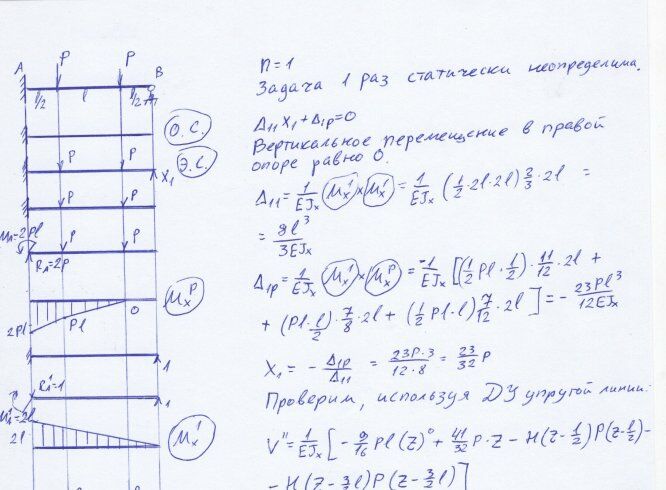 P
P
A
B
l/2
l
l/2
О.С.
P
P
Э.С.
X₁
P
P
M_A=2Pl
P
P
R_A=2P
M_x^P
0
2Pl
Pl
1
R_A^1=1
1
M_A^1=2l
2l
M_x^1
n=1
Задача 1 раз статически неопределима.
Δ₁₁X₁+Δ₁p=0
Вертикальное перемещение в правой
опоре равно 0.
Δ₁₁ = 1/EJx (M_x^1)×(M_x^1) = 1/EJx (1/2·2l·2l) 2/3·2l =
= 8l³/3EJx
Δ₁p = 1/EJx (M_x^1)×(M_x^P) = -1/EJx [(1/2 Pl·l/2)·11/12·2l +
+ (Pl·l/2) 7/8·2l + (1/2 Pl·l) 7/12·2l] = - 23Pl³/12EJx
X₁ = - Δ₁p/Δ₁₁ = 23P·3/12·8 = 23/32 P
Проверим, используя ДУ упругой линии:
V'' = 1/EJx [- 9/16 Pl(z)⁰ + 41/32 P·z - H(z-l/2)P(z-l/2)-
- H(z-3/2l)P(z-3/2l)]